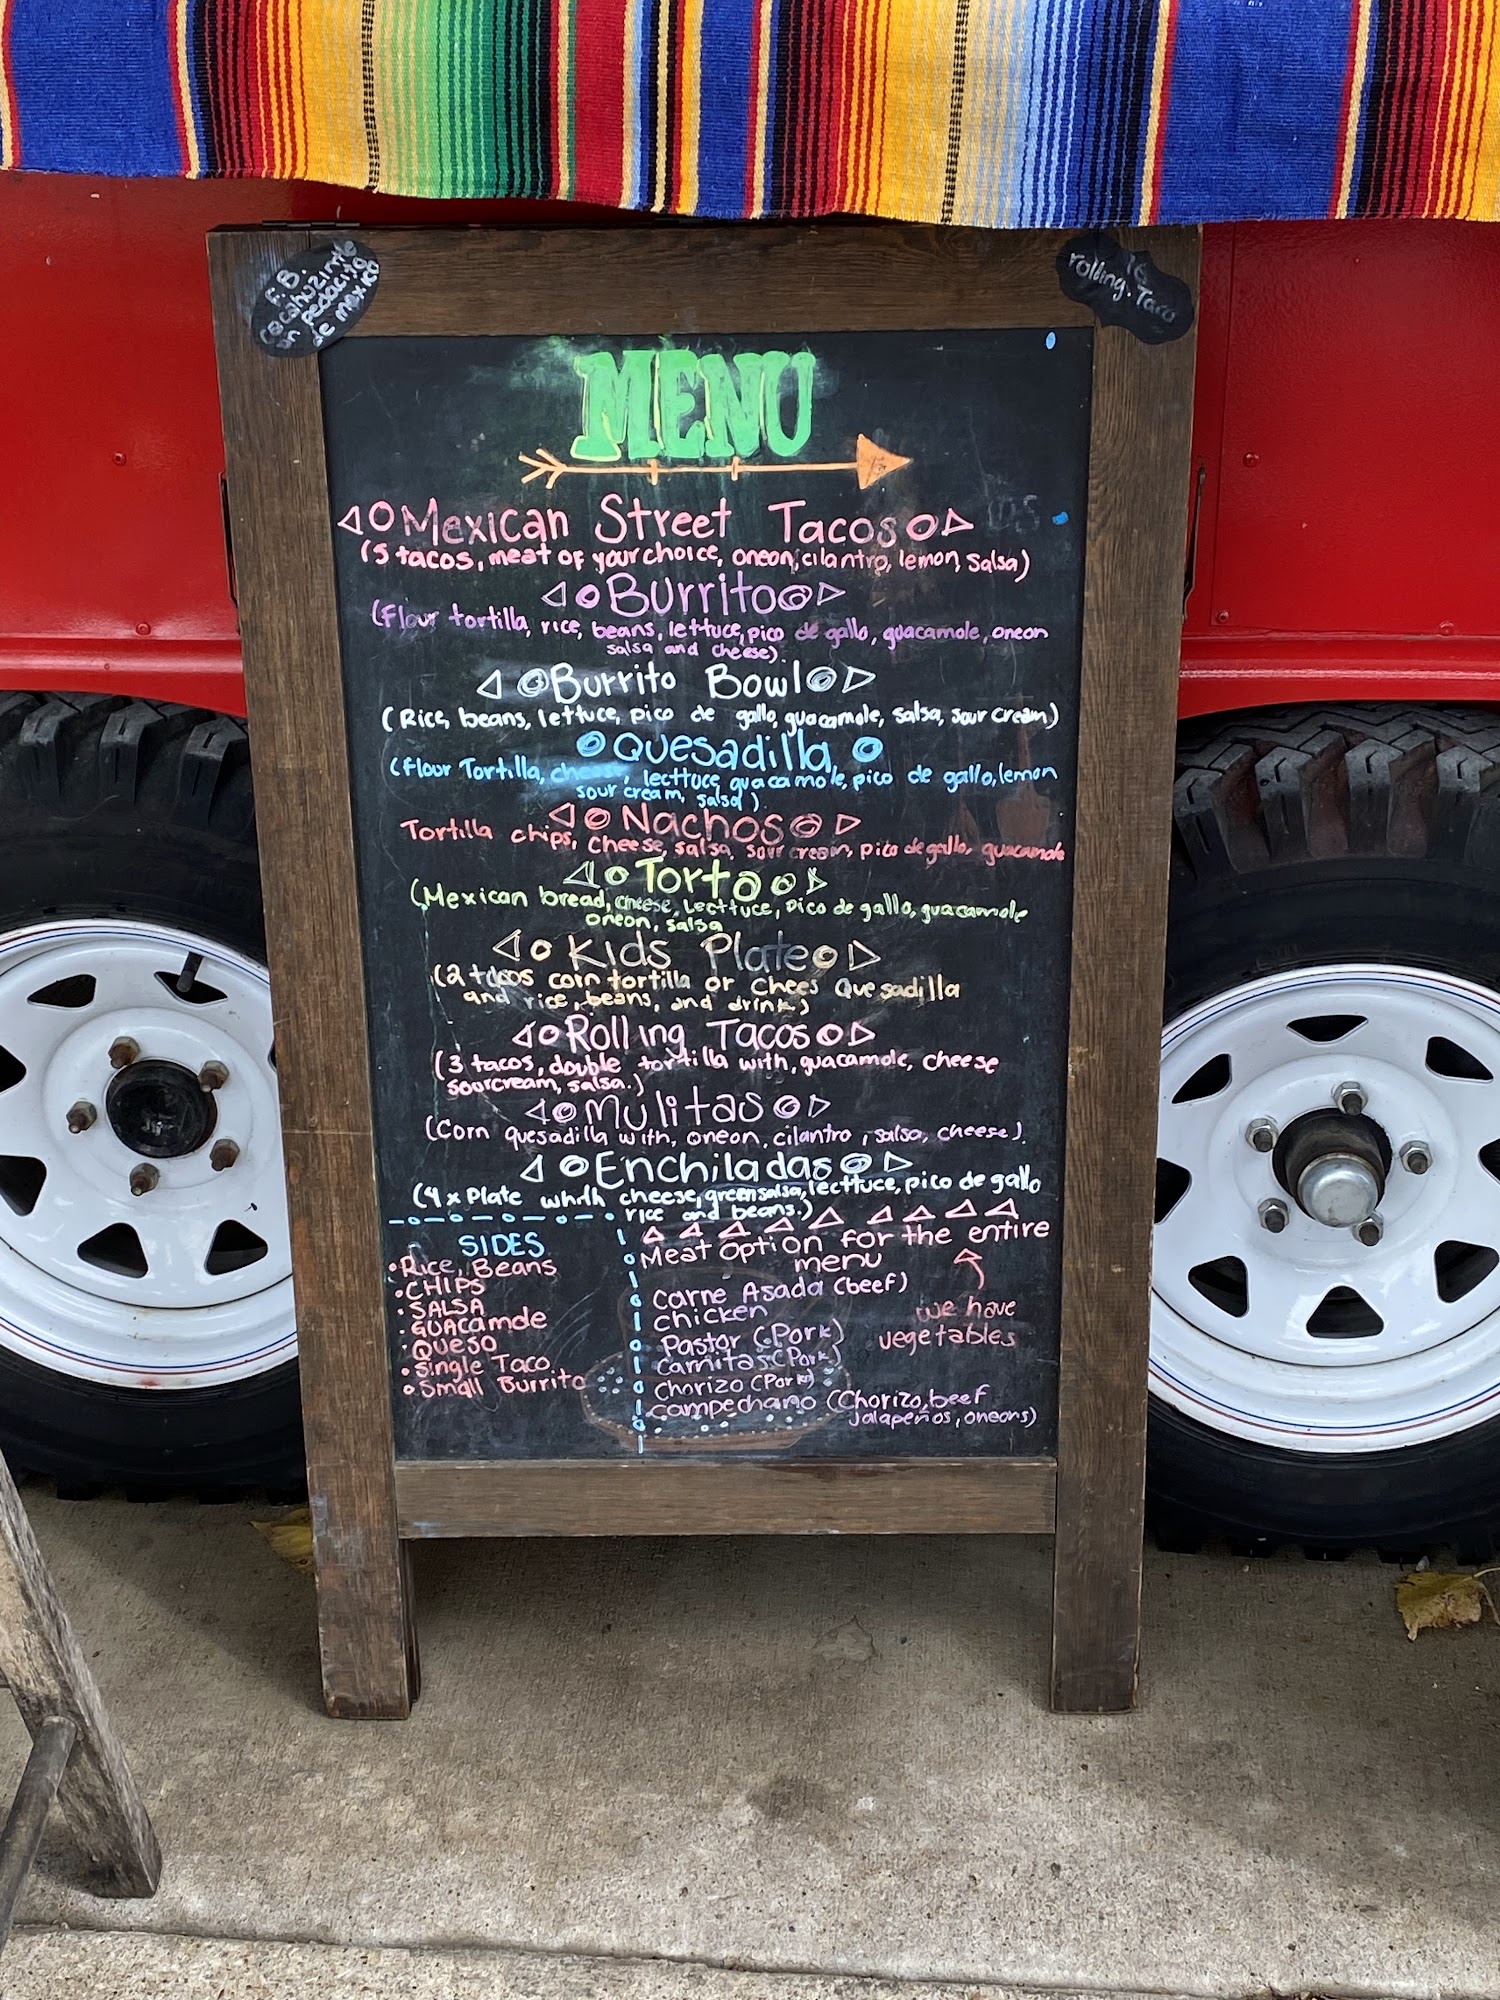 F.B.
cocahuzinte
un pedacito
de mexico
IG
rolling.Taco
MENU
Mexican Street Tacos
(5 tacos, meat of your choice, oneon, cilantro, lemon, salsa)
Burrito
(Flour tortilla, rice, beans, lettuce, pico de gallo, guacamole, oneon
salsa and cheese)
Burrito Bowl
(Rice, beans, lettuce, pico de gallo, guacamole, salsa, sour cream)
Quesadilla
(Flour Tortilla, cheese, lecttuce, guacamole, pico de gallo, lemon
sour cream, salsa)
Nachos
Tortilla chips, cheese, salsa, sour cream, pico de gallo, guacamole
Torta
(Mexican bread, cheese, lecttuce, pico de gallo, guacamole
oneon, salsa
Kids Plate
(2 tacos corn tortilla or chees Quesadilla
and rice, beans, and drink)
Rolling Tacos
(3 tacos, double tortilla with, guacamole, cheese
sourcream, salsa.)
Mulitas
(Corn quesadilla with, oneon, cilantro, salsa, cheese).
Enchiladas
(4 x Plate cheese, green salsa, lecttuce, pico de gallo
rice and beans.)
SIDES
• Rice, Beans
• CHIPS
• SALSA
• GUACAMOLE
• QUESO
• Single Taco
• Small Burrito
Meat option for the entire
menu
Carne Asada (beef)
chicken
Pastor (Pork)
Carnitas (Pork)
Chorizo (Pork)
campechano (Chorizo, beef
Jalapeños, oneons)
we have
vegetables